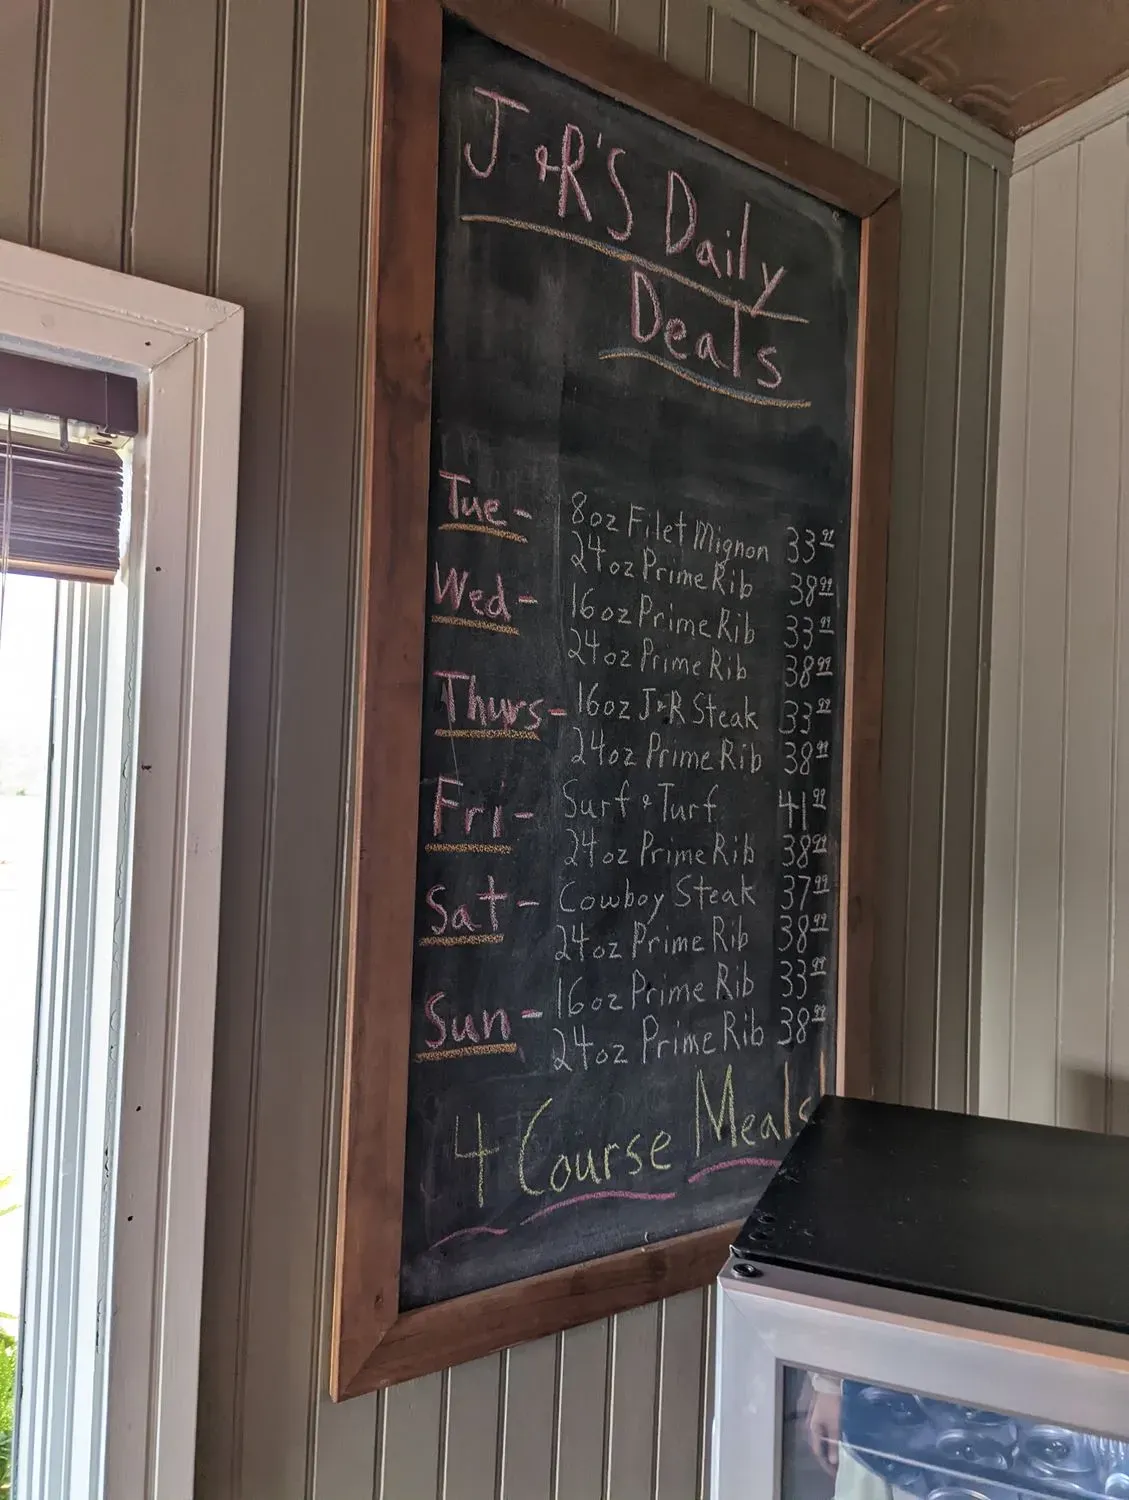 J & R'S Daily
Deals
Tue - 8oz Filet Mignon 33.99
24oz Prime Rib 38.99
Wed - 16oz Prime Rib 33.99
24oz Prime Rib 38.99
Thurs - 16oz J&R Steak 33.99
24oz Prime Rib 38.99
Fri - Surf & Turf 41.99
24oz Prime Rib 38.99
Sat - Cowboy Steak 37.99
24oz Prime Rib 38.99
Sun - 16oz Prime Rib 33.99
24oz Prime Rib 38.99
4 Course Meals